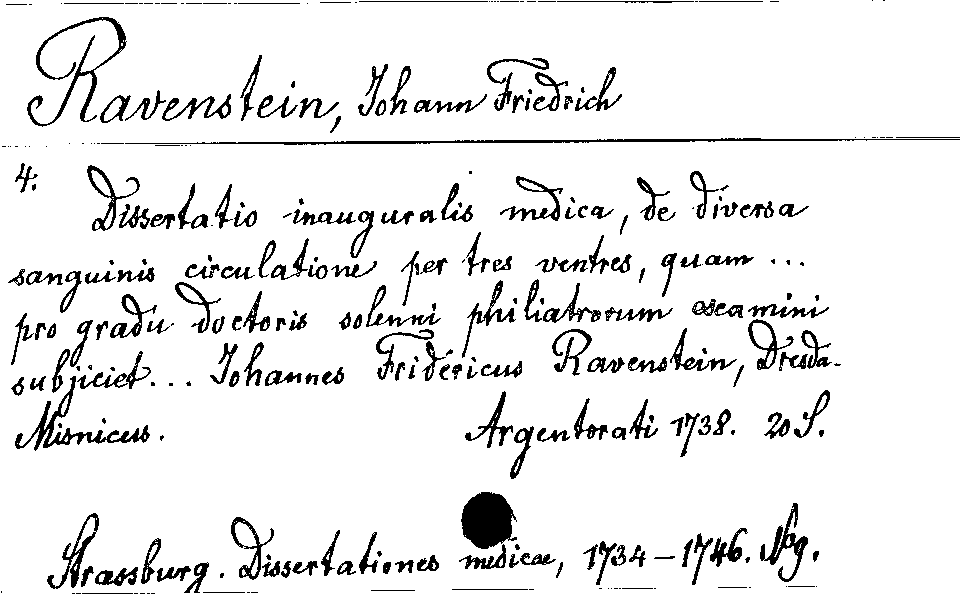 Ravenstein, Johann Friedrich
4.
Dissertatio inauguralis medica, de diversa
sanguinis circulatione per tres ventres, quam ...
pro gradu doctoris solenni philiatrorum examini
subjiciet... Johannes Fridericus Ravenstein, Dresda-
Misnicus.
Argentorati 1738. 20 S.
Strassburg. Dissertationes medicae, 1734-1746. No 9.